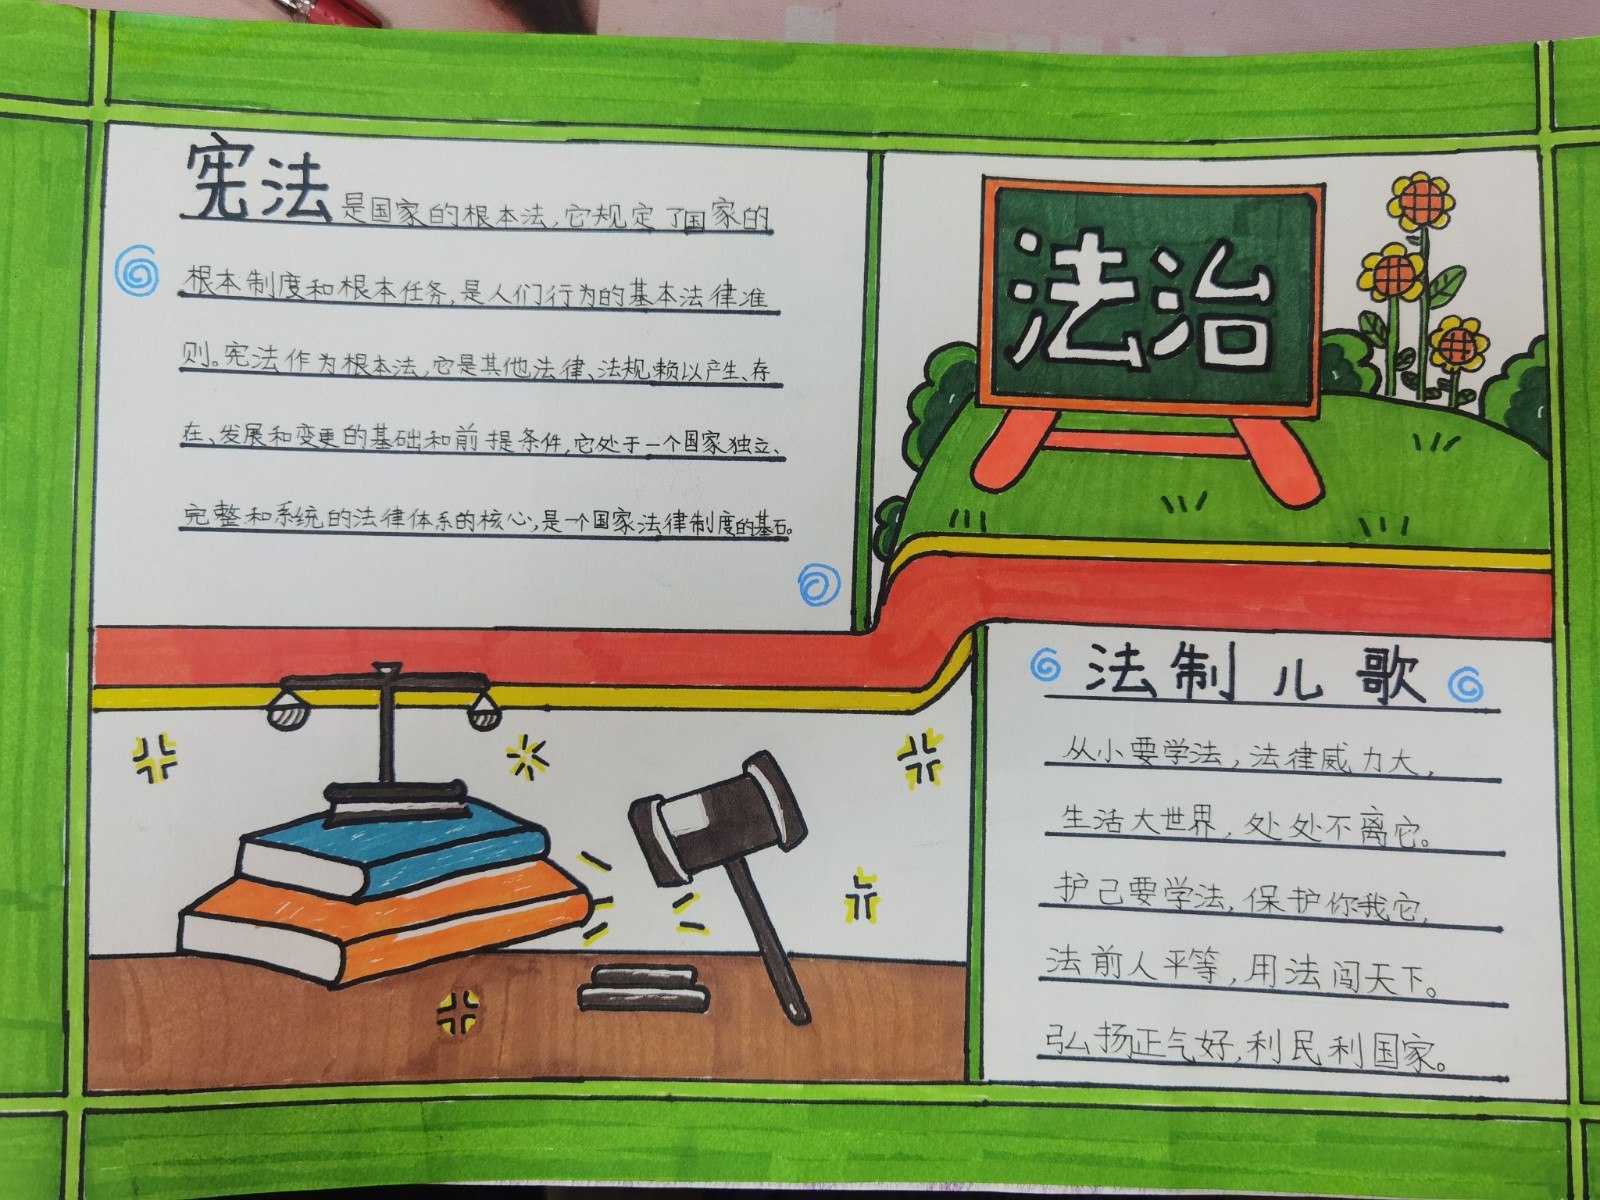 宪法是国家的根本法,它规定了国家的
根本制度和根本任务,是人们行为的基本法律准
则。宪法作为根本法,它是其他法律、法规赖以产生、存
在、发展和变更的基础和前提条件,它处于一个国家独立、
完整和系统的法律体系的核心,是一个国家法律制度的基石。
法治
法制儿歌
从小要学法,法律威力大,
生活大世界,处处不离它。
护己要学法,保护你我它,
法前人平等,用法闯天下。
弘扬正气好,利民利国家。